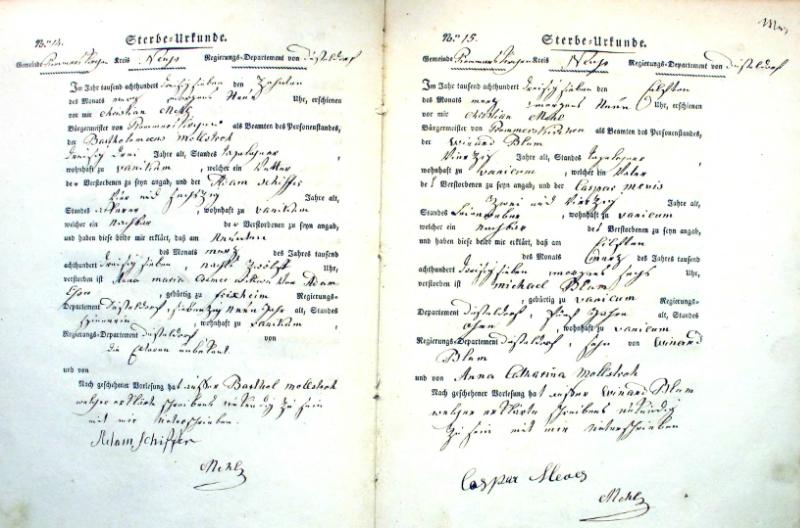 No. 14.
Sterbe-Urkunde.
Gemeinde Rommerskirchen Kreis Neuß Regierungs-Departement von Düsseldorf
Im Jahr tausend achthundert dreißig sieben den Zehnten
des Monats merz morgens Neun Uhr, erschienen
vor mir Christian Mehl
Bürgermeister von Rommerskirchen als Beamten des Personenstandes,
der Bartholomeus Mollstroh
dreißig drei Jahre alt, Standes tagelohner,
wohnhaft zu vanikum, welcher ein Vetter
der Verstorbenen zu seyn angab; und der Adam Schiffer
vier und sechszig Jahre alt,
Standes, wohnhaft zu vanikum
welcher ein nachbar der Verstorbenen zu seyn angab,
und haben diese beide mir erklärt, daß am Neunten
des Monats merz des Jahres tausend
achthundert dreißig sieben, nachts zwölf Uhr,
verstorben ist Anna maria Wittwe von Adam
Esser, gebürtig zu Regierungs-
Departement Düsseldorf, siebenzig Neun Jahr alt, Standes
spinnerin, wohnhaft zu vanikum,
Regierungs-Departement Düsseldorf von
die Eltern unbekant.
und von
Nach geschehener Vorlesung hat außer Barthol mollstroh
welcher erklärte schreibens unkundig zu sein
mit mir unterschrieben.
Adam Schiffer
Mehl
No. 15.
Sterbe-Urkunde.
Gemeinde Rommerskirchen Kreis Neuß Regierungs-Departement von Düsseldorf
Im Jahr tausend achthundert dreißig sieben den Eilften
des Monats merz morgens Neun Uhr, erschienen
vor mir Christian Mehl
Bürgermeister von Rommerskirchen als Beamten des Personenstandes,
der Winand Blum
Vierzig Jahre alt, Standes tagelohner,
wohnhaft zu vanicum, welcher ein Vater
des Verstorbenen zu seyn angab; und der Caspar mevis
zwei und Vierzig Jahre alt,
Standes, wohnhaft zu vanicum
welcher ein nachbar des Verstorbenen zu seyn angab,
und haben diese beide mir erklärt, daß am Eilften
des Monats merz des Jahres tausend
achthundert dreißig sieben morgens sechs Uhr,
verstorben ist michael Blum
, gebürtig zu vanicum Regierungs-
Departement Düsseldorf, fünf Jahre alt, Standes
ohne, wohnhaft zu vanicum
Regierungs-Departement Düsseldorf, sohn von Winand
Blum
und von Anna Catharina Mollstroh
Nach geschehener Vorlesung hat außer Winand Blum
welcher erklärte schreibens unkundig
zu sein mit mir unterschrieben
Caspar Meves
Mehl